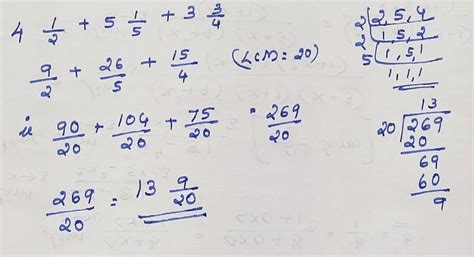 4 1/2 + 5 1/5 + 3 3/4
9/2 + 26/5 + 15/4 (LCM = 20)
ie 90/20 + 104/20 + 75/20 = 269/20
269/20 = 13 9/20
2 | 2, 5, 4
2 | 1, 5, 2
5 | 1, 5, 1
1, 1, 1
13
20 ) 269
20
69
60
9